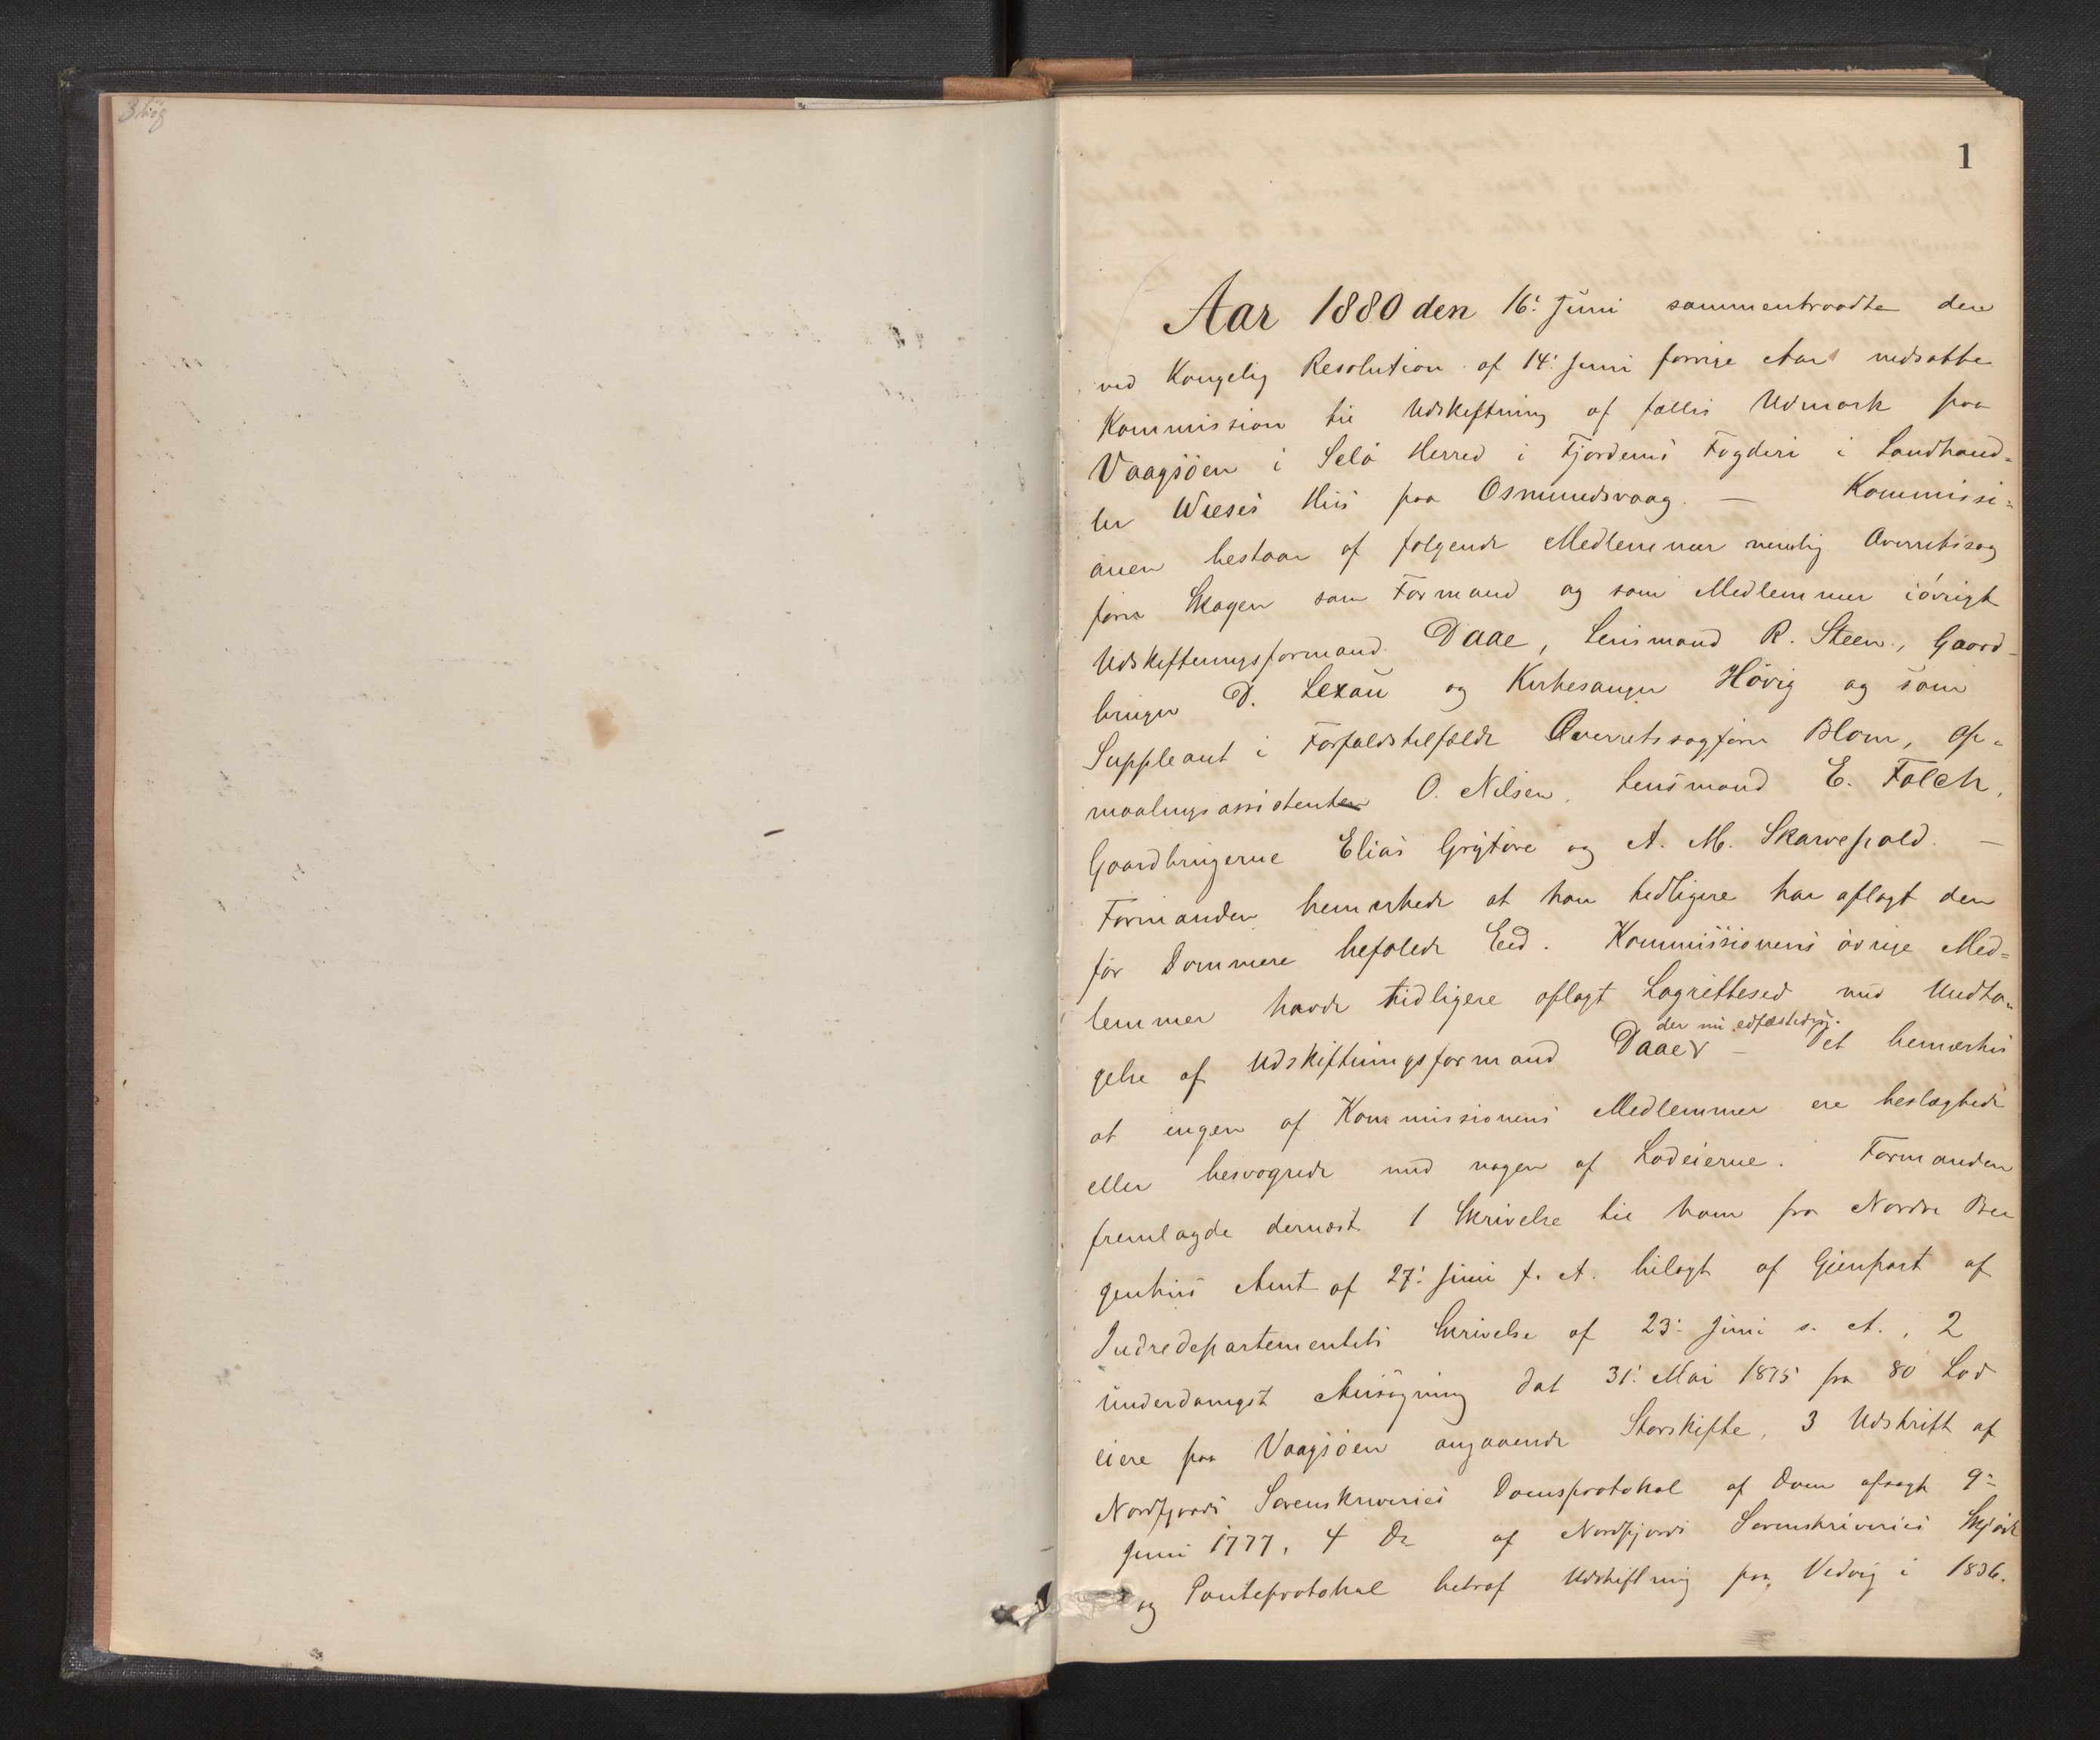 1
Aar 1880 den 16: Juni sammentraadte den
ved Kongelig Resolution af 14: Juni forrige Aar nedsatte
Kommission til Udskiftning af fælles Udmark paa
Vaagsöen i Selö Herred i Fjordenes Fogderi i Landhand-
ler Wieses Hus paa Osmundsvaag. — Kommissi-
onen bestaar af følgende Medlemmer nemlig Overretssag
förer Skagen som Formand og som Medlemmer iövrigt
Udskiftningsformand Daae, Lensmand R. Steen, Gaard-
bruger D. Lexau og Kirkesanger Hövig og som
Suppleant i Forfaldstilfælde Overretssagförer Blom, Op-
maalingsassistenten O. Nilsen, Lensmand E. Falch,
Gaardbrugerne Elias Grytöre og A. M. Skarvepold. —
Formanden bemærkede at han tidligere har aflagt den
for Dommere befalede Eed. Kommissionens övrige Med-
lemmer havde tidligere aflagt Lagrettesed med Undta-
der nu edfæstedes.
gelse af Udskiftningsformand Daae v — Det bemærkes
at ingen af Kommissionens Medlemmer ere beslægtede
eller besvogrede med nogen af Lodeierne. Formanden
fremlagde dernæst 1 Skrivelse til ham fra Nordre Ber
genhus Amt af 27: Juni f. A. bilagt af Gjenpart af
Indredepartementets Skrivelse af 23: Juni s. A., 2
underdanigst Ansögning dat 31: Mai 1875 fra 80 Lod
eiere paa Vaagsöen angaaende Storskifte, 3 Udskrift af
Nordfjords Sorenskriveries Domsprotokol af Dom afsagt 9:
Juni 1777, 4 Do af Nordfjords Sorenskriveries Skjöde
og Panteprotokol betræf Udskiftning paa Vedvig i 1836.